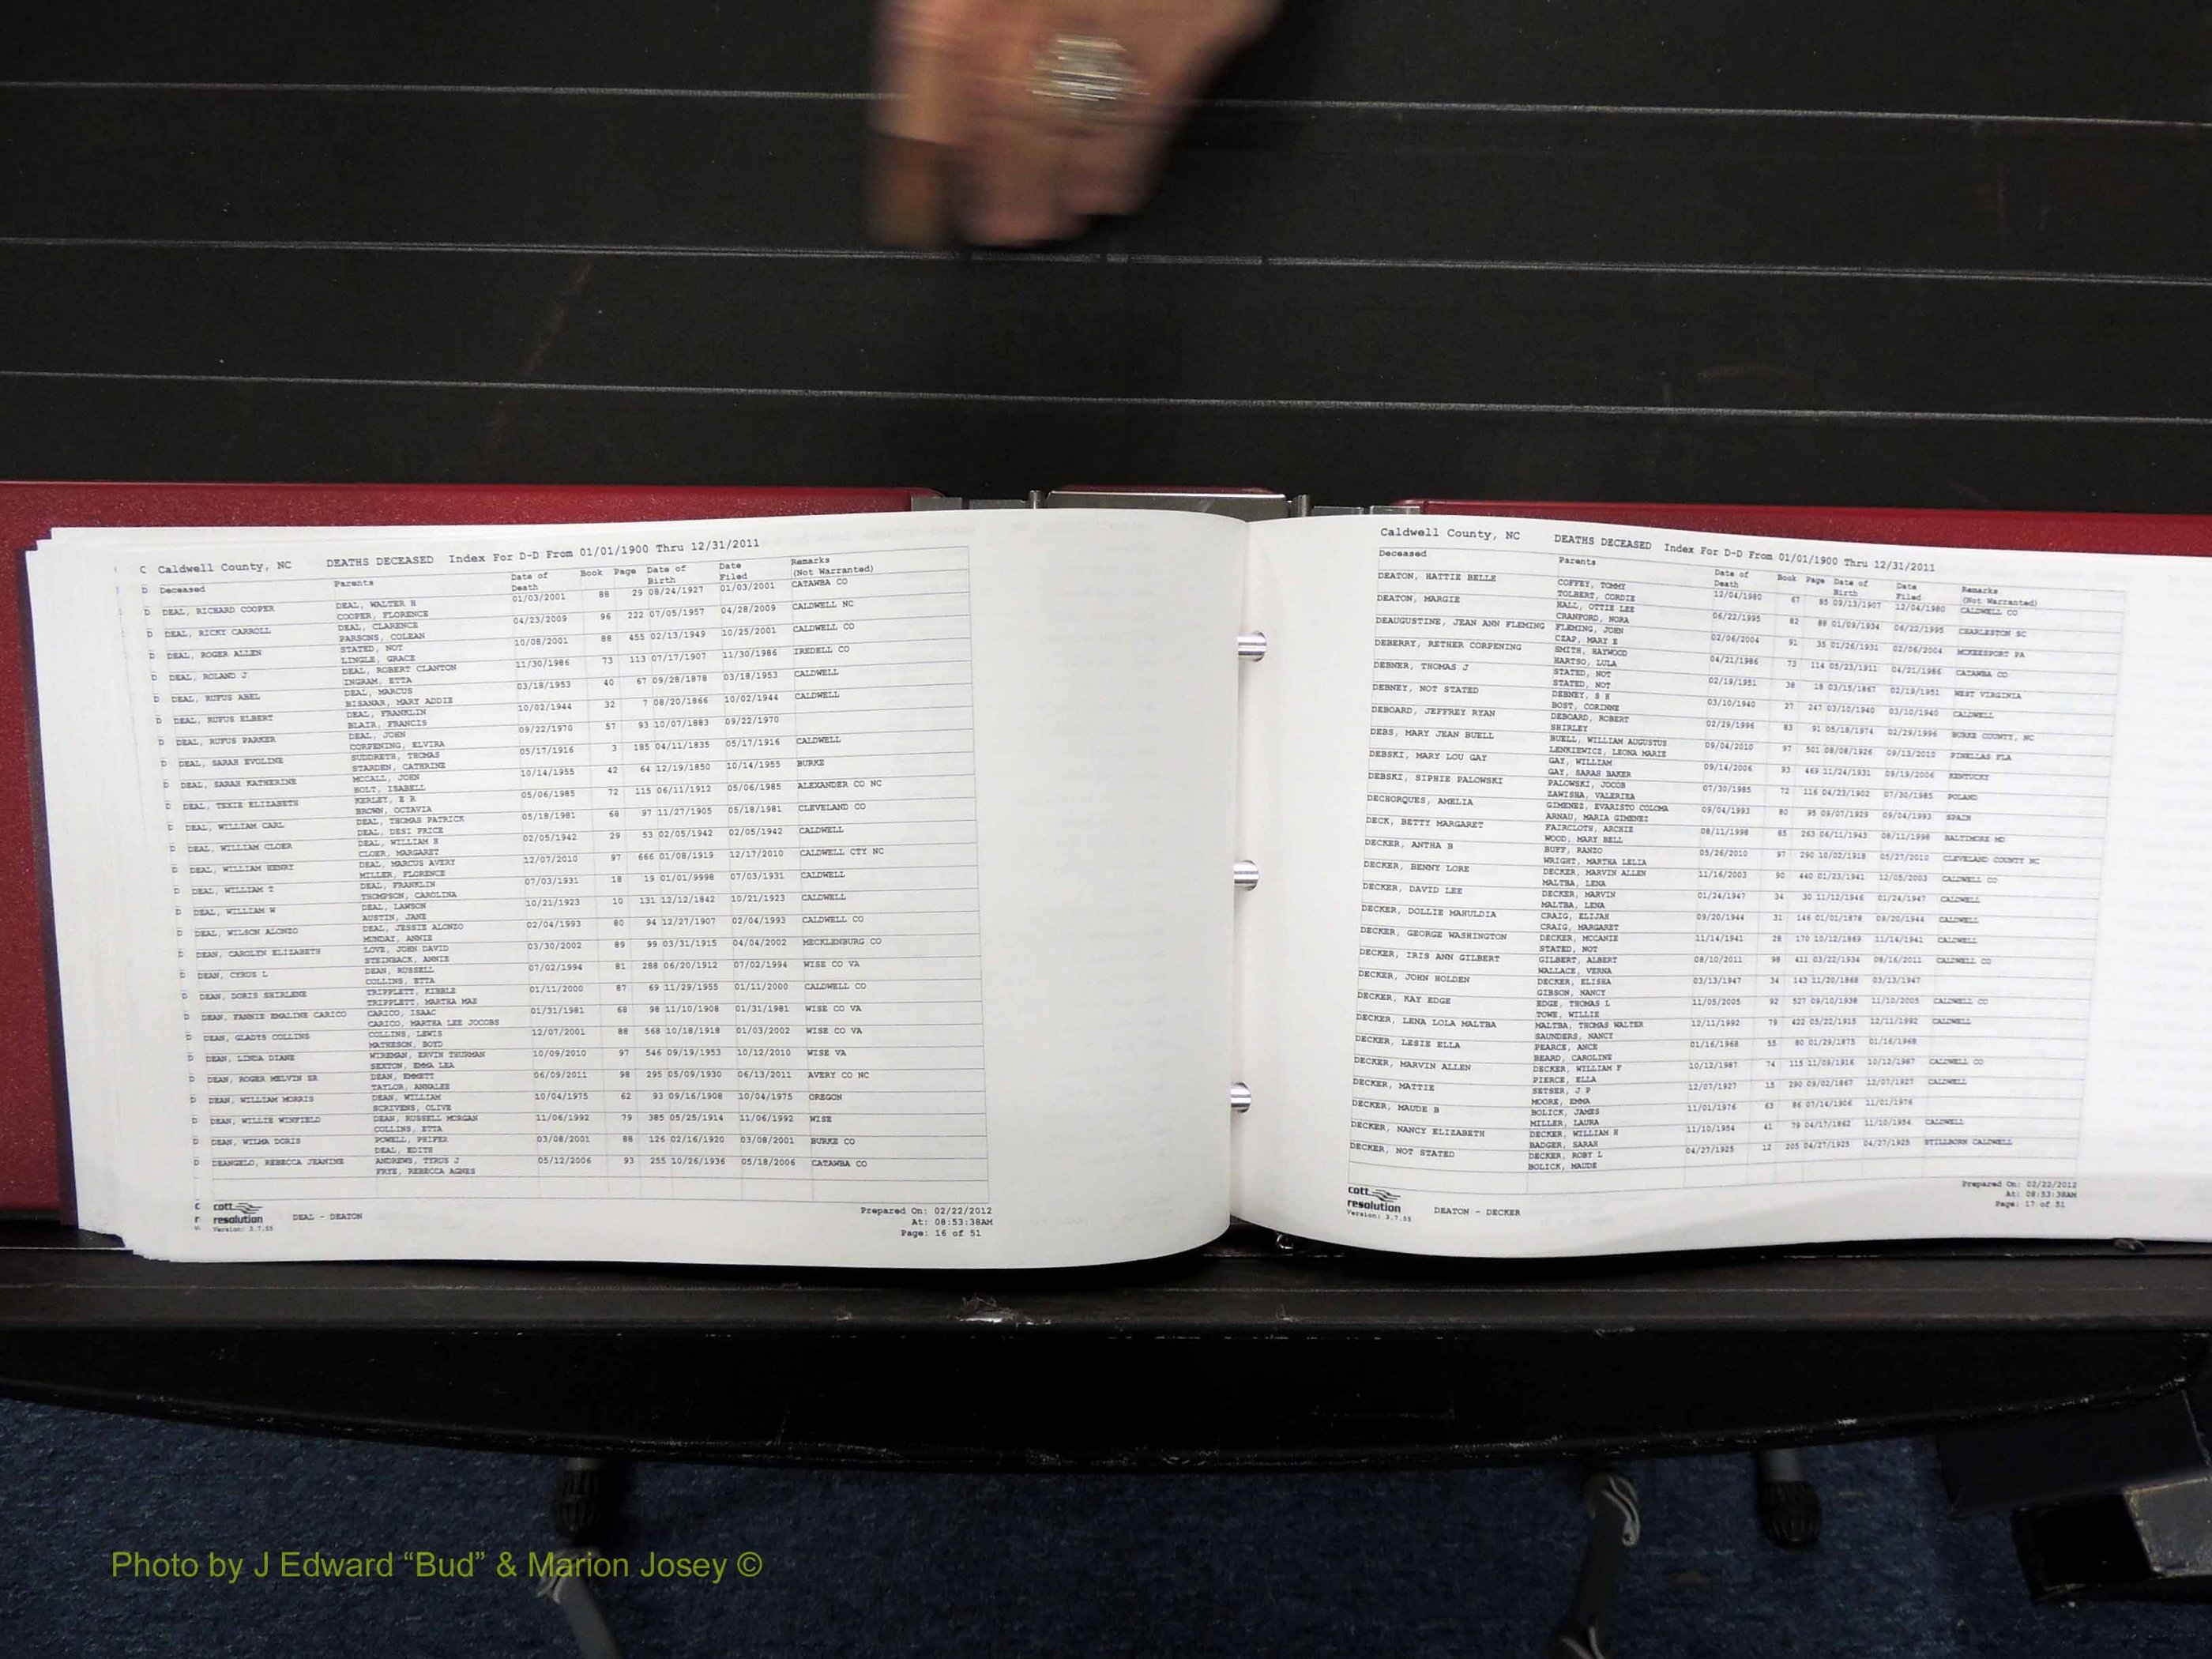 C Caldwell County, NC DEATHS DECEASED Index For D-D From 01/01/1900 Thru 12/31/2011
D Deceased Parents Date of Death Book Page Date of Birth Date Filed Remarks (Not Warranted)
D DEAL, RICHARD COOPER DEAL, WALTER H 01/03/2001 88 29 08/24/1927 01/03/2001 CATAWBA CO
COOPER, FLORENCE
D DEAL, RICKY CARROLL DEAL, CLARENCE 04/23/2009 96 222 07/05/1957 04/28/2009 CALDWELL NC
PARSONS, COLEAN
D DEAL, ROGER ALLEN STATED, NOT 10/08/2001 88 455 02/13/1949 10/25/2001 CALDWELL CO
LINGLE, GRACE
D DEAL, ROLAND J DEAL, ROBERT CLANTON 11/30/1986 73 113 07/17/1907 11/30/1986 IREDELL CO
INGRAM, ETTA
D DEAL, RUFUS ABEL DEAL, MARCUS 03/18/1953 40 67 09/28/1878 03/18/1953 CALDWELL
BISANAR, MARY ADDIE
D DEAL, RUFUS ELBERT DEAL, FRANKLIN 10/02/1944 32 7 08/20/1866 10/02/1944 CALDWELL
BLAIR, FRANCIS
D DEAL, RUFUS PARKER DEAL, JOHN 09/22/1970 57 93 10/07/1883 09/22/1970
CORPENING, ELVIRA
D DEAL, SARAH EVOLINE SUDDRETH, THOMAS 05/17/1916 3 185 04/11/1835 05/17/1916 CALDWELL
STARDEN, CATHRINE
D DEAL, SARAH KATHERINE MCCALL, JOHN 10/14/1955 42 64 12/19/1850 10/14/1955 BURKE
HOLT, ISABELL
D DEAL, TEXIE ELIZABETH KERLEY, E R 05/06/1985 72 115 06/11/1912 05/06/1985 ALEXANDER CO NC
BROWN, OCTAVIA
D DEAL, WILLIAM CARL DEAL, THOMAS PATRICK 05/18/1981 68 97 11/27/1905 05/18/1981 CLEVELAND CO
DEAL, DESI PRICE
D DEAL, WILLIAM CLOER DEAL, WILLIAM H 02/05/1942 29 53 02/05/1942 02/05/1942 CALDWELL
CLOER, MARGARET
D DEAL, WILLIAM HENRY DEAL, MARCUS AVERY 12/07/2010 97 666 01/08/1919 12/17/2010 CALDWELL CTY NC
MILLER, FLORENCE
D DEAL, WILLIAM T DEAL, FRANKLIN 07/03/1931 18 19 01/01/9998 07/03/1931 CALDWELL
THOMPSON, CAROLINA
D DEAL, WILLIAM W DEAL, LAWSON 10/21/1923 10 131 12/12/1842 10/21/1923 CALDWELL
AUSTIN, JANE
D DEAL, WILSON ALONZO DEAL, JESSIE ALONZO 02/04/1993 80 94 12/27/1907 02/04/1993 CALDWELL CO
MUNDAY, ANNIE
D DEAN, CAROLYN ELIZABETH LOVE, JOHN DAVID 03/30/2002 89 99 03/31/1915 04/04/2002 MECKLENBURG CO
STEINBACK, ANNIE
D DEAN, CYRUS L DEAN, RUSSELL 07/02/1994 81 288 06/20/1912 07/02/1994 WISE CO VA
COLLINS, ETTA
D DEAN, DORIS SHIRLENE TRIPPLETT, KIBBLE 01/11/2000 87 69 11/29/1955 01/11/2000 CALDWELL CO
TRIPPLETT, MARTHA MAE
D DEAN, FANNIE EMALINE CARICO CARICO, ISAAC 01/31/1981 68 98 11/10/1908 01/31/1981 WISE CO VA
CARICO, MARTHA LEE JOCOBS
D DEAN, GLADYS COLLINS COLLINS, LEWIS 12/07/2001 88 568 10/18/1918 01/03/2002 WISE CO VA
MATHESON, BOYD
D DEAN, LINDA DIANE WIREMAN, ERVIN THURMAN 10/09/2010 97 546 09/19/1953 10/12/2010 WISE VA
SEXTON, EMMA LEA
D DEAN, ROGER MELVIN SR DEAN, EMMETT 06/09/2011 98 295 05/09/1930 06/13/2011 AVERY CO NC
TAYLOR, ANNALEE
D DEAN, WILLIAM MORRIS DEAN, WILLIAM 10/04/1975 62 93 09/16/1908 10/04/1975 OREGON
SCRIVENS, OLIVE
D DEAN, WILLIE WINFIELD DEAN, RUSSELL MORGAN 11/06/1992 79 385 05/25/1914 11/06/1992 WISE
COLLINS, ETTA
D DEAN, WILMA DORIS POWELL, PHIFER 03/08/2001 88 126 02/16/1920 03/08/2001 BURKE CO
DEAL, EDITH
D DEANGELO, REBECCA JEANINE ANDREWS, TYRUS J 05/12/2006 93 255 10/26/1936 05/18/2006 CATAWBA CO
FRYE, REBECCA AGNES
cott
resolution
Version: 3.7.55
DEAL - DEATON
Prepared On: 02/22/2012
At: 08:53:38AM
Page: 16 of 51
Caldwell County, NC DEATHS DECEASED Index For D-D From 01/01/1900 Thru 12/31/2011
Deceased Parents Date of Death Book Page Date of Birth Date Filed Remarks (Not Warranted)
DEATON, HATTIE BELLE COFFEY, TOMMY 12/04/1980 67 85 09/13/1907 12/04/1980 CALDWELL CO
TOLBERT, CORDIE
DEATON, MARGIE HALL, OTTIE LEE 06/22/1995 82 88 01/09/1934 06/22/1995 CHARLESTON SC
CRANFORD, NORA
DEAUGUSTINE, JEAN ANN FLEMING FLEMING, JOHN 02/06/2004 91 35 01/26/1931 02/06/2004 MCKEESPORT PA
CZAP, MARY E
DEBERRY, RETHER CORPENING SMITH, HAYWOOD 04/21/1986 73 114 05/23/1911 04/21/1986 CATAWBA CO
HARTSO, LULA
DEBNER, THOMAS J STATED, NOT 02/19/1951 38 18 03/15/1867 02/19/1951 WEST VIRGINIA
STATED, NOT
DEBNEY, NOT STATED DEBNEY, S H 03/10/1940 27 247 03/10/1940 03/10/1940 CALDWELL
BOST, CORINNE
DEBOARD, JEFFREY RYAN DEBOARD, ROBERT 02/29/1996 83 91 05/18/1974 02/29/1996 BURKE COUNTY, NC
SHIRLEY
DEBS, MARY JEAN BUELL BUELL, WILLIAM AUGUSTUS 09/04/2010 97 501 08/08/1926 09/13/2010 PINELLAS FLA
LENKIEWICZ, LEONA MARIE
DEBSKI, MARY LOU GAY GAY, WILLIAM 09/14/2006 93 469 11/24/1931 09/19/2006 KENTUCKY
GAY, SARAH BAKER
DEBSKI, SIPHIE PALOWSKI PALOWSKI, JOCOB 07/30/1985 72 116 04/23/1902 07/30/1985 POLAND
ZAWISHA, VALERIKA
DECHORQUES, AMELIA GIMENEZ, EVARISTO COLOMA 09/04/1993 80 95 09/07/1929 09/04/1993 SPAIN
ARNAU, MARIA GIMENEZ
DECK, BETTY MARGARET FAIRCLOTH, ARCHIE 08/11/1998 85 263 06/11/1943 08/11/1998 BALTIMORE MD
WOOD, MARY BELL
DECKER, ANTHA B BUFF, RANZO 05/26/2010 97 290 10/02/1918 05/27/2010 CLEVELAND COUNTY NC
WRIGHT, MARTHA LELIA
DECKER, BENNY LORE DECKER, MARVIN ALLEN 11/16/2003 90 440 01/23/1941 12/05/2003 CALDWELL CO
MALTBA, LENA
DECKER, DAVID LEE DECKER, MARVIN 01/24/1947 34 30 11/12/1946 01/24/1947 CALDWELL
MALTBA, LENA
DECKER, DOLLIE MAHULDIA CRAIG, ELIJAH 09/20/1944 31 146 01/01/1878 09/20/1944 CALDWELL
CRAIG, MARGARET
DECKER, GEORGE WASHINGTON DECKER, MCCANIE 11/14/1941 28 170 10/12/1869 11/14/1941 CALDWELL
STATED, NOT
DECKER, IRIS ANN GILBERT GILBERT, ALBERT 08/10/2011 98 411 03/22/1934 08/16/2011 CALDWELL CO
WALLACE, VERNA
DECKER, JOHN HOLDEN DECKER, ELISHA 03/13/1947 34 143 11/20/1868 03/13/1947
GIBSON, NANCY
DECKER, KAY EDGE EDGE, THOMAS L 11/05/2005 92 527 09/10/1938 11/10/2005 CALDWELL CO
TOWE, WILLIE
DECKER, LENA LOLA MALTBA MALTBA, THOMAS WALTER 12/11/1992 79 422 05/22/1915 12/11/1992 CALDWELL
SAUNDERS, NANCY
DECKER, LESIE ELLA PEARCE, ANCE 01/16/1968 55 80 01/29/1875 01/16/1968
BEARD, CAROLINE
DECKER, MARVIN ALLEN DECKER, WILLIAM F 10/12/1987 74 115 11/09/1916 10/12/1987 CALDWELL CO
PIERCE, ELLA
DECKER, MATTIE SETSER, J P 12/07/1927 15 290 09/02/1867 12/07/1927 CALDWELL
MOORE, EMMA
DECKER, MAUDE B BOLICK, JAMES 11/01/1976 63 86 07/14/1906 11/01/1976
MILLER, LAURA
DECKER, NANCY ELIZABETH DECKER, WILLIAM H 11/10/1954 41 79 04/17/1862 11/10/1954 CALDWELL
BADGER, SARAH
DECKER, NOT STATED DECKER, ROBY L 04/27/1925 12 205 04/27/1925 04/27/1925 STILLBORN CALDWELL
BOLICK, MAUDE
cott
resolution
Version: 3.7.55
DEATON - DECKER
Prepared On: 02/22/2012
At: 08:53:38AM
Page: 17 of 51
Photo by J Edward “Bud” & Marion Josey ©